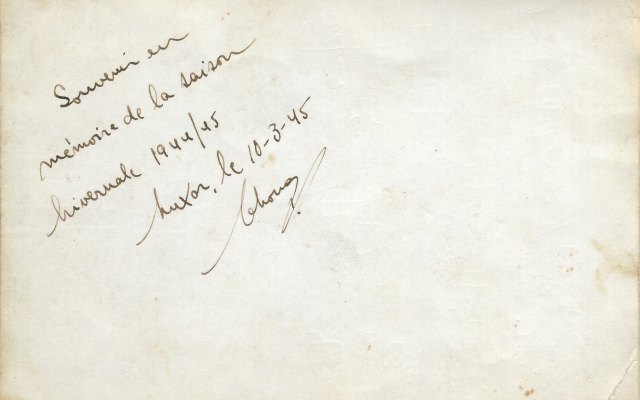 Souvenir en
mémoire de la saison
hivernale 1944/45
Luxor, le 10-3-45